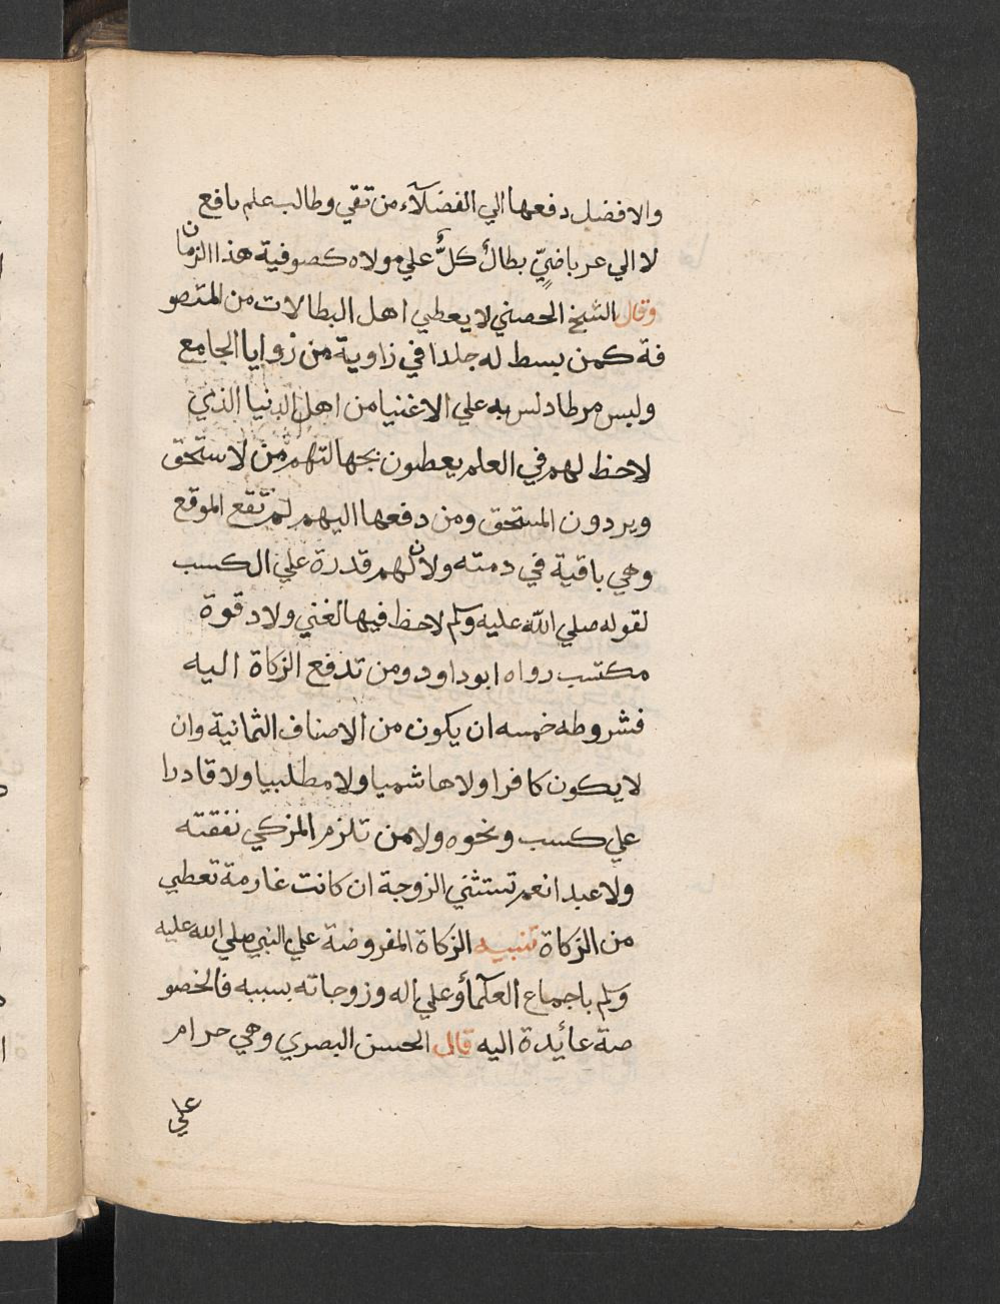 والافضل دفعها الي الفضلآء من تقي وطالب علم نافع
لا الي عرباضيٍّ بطال كلٌّ علي مولاه كصوفية هذا الزمان
وقال الشيخ الحصني لا يعطي اهل البطالات من المتصو
فة كمن بسط له جلدا في زاوية من زوايا الجامع
ولبس مرطا دلس به علي الاغنيا من اهل الدنيا الذين
لاحظ لهم في العلم يعطون بجهالتهم من لاستحق
ويردون المستحق ومن دفعها اليهم لم تقع الموقع
وهي باقية في دمته ولان لهم قدرة علي الكسب
لقوله صلي الله عليه وسلم لاحظ فيها لغني ولاد قوة
مكتسب رواه ابوداود ومن تدفع الزكاة اليه
فشروطه خمسه ان يكون من الاصناف الثمانية وان
لايكون كافرا ولا هاشميا ولا مطلبيا ولا قادرا
علي كسب ونحوه ولا من تلزم المزكي نفقته
ولا عبدا نعم تستثني الزوجة ان كانت غارمة تعطي
من الزكاة تنبيه الزكاة المفروضة علي النبي صلي الله عليه
وسلم باجماع العلمآ وعلي اله وزوجاته بسببه فالخصو
صة عائدة اليه قال الحسن البصري وهي حرام
علي